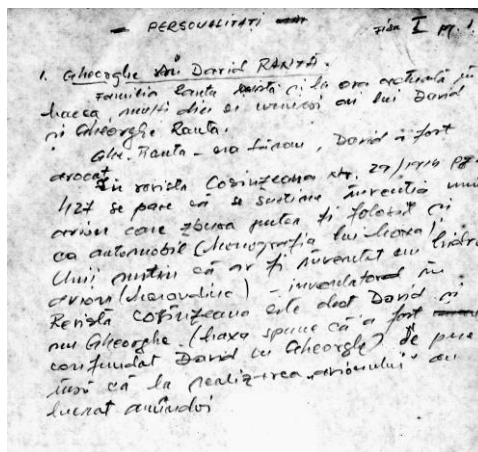 — PERSONALITĂȚI —
Fișa I pg. 1
1. Gheorghe sau David RANTĂ.
Familia Ranta există și la ora actuală în
mulți dintre ei veniseră cu lui David
și Gheorghe Ranta.
Ghe. Ranta - era țăran, David a fost
avocat.
În revista Cosînzeana nr. 29/1914 pg.
427 se pare că se susține invenția unui
avion care zbura putea fi folosit și
ca automobil (Monografia lui
Unii susțin că ar fi inventat un hidro
avion - inventatorul în
Revista Cosînzeana este dat David și
nu Gheorghe. spune că a fost
confundat David cu Gheorghe) Se pare
însă că la realizarea „avionului” au
lucrat amîndoi